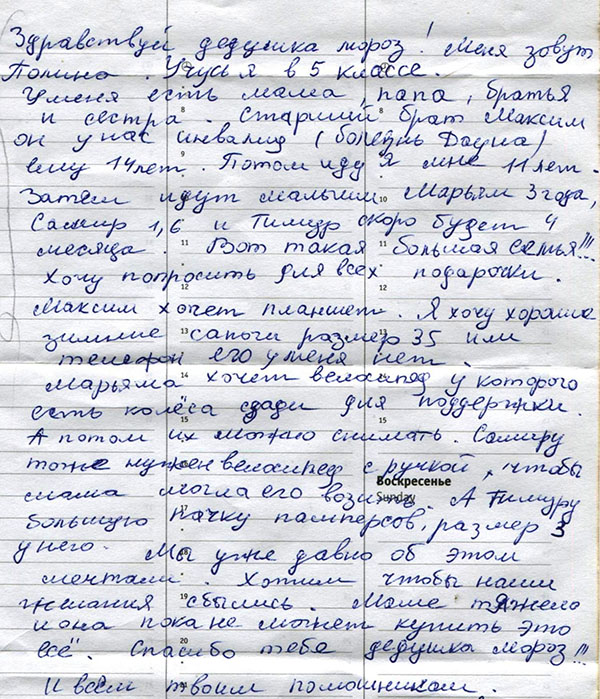 Здравствуй дедушка мороз! Меня зовут
Полина. Учусь я в 5 классе.
У меня есть мама, папа, братья
и сестра. Старший брат Максим
он у нас инвалид (болезнь Дауна)
ему 14 лет. Потом иду я мне 11 лет.
Затем идут малыши Марьям 3 года,
Самир 1,6 и Тимур скоро будет 4
месяца. Вот такая большая семья!!!
Хочу попросить для всех подарочки.
Максим хочет планшет. Я хочу хорошие
зимние сапоги размер 35 или
телефон его у меня нет.
Марьяма хочет велосипед у которого
есть колёса сзади для поддержки.
А потом их можно снимать. Самиру
тоже нужен велосипед с ручкой, чтобы
Воскресенье
мама могла его возить. А Тимуру
Sunday
большую пачку памперсов, размер 3
у него. Мы уже давно об этом
мечтали. Хотим чтобы наши
желания сбылись. Маме тяжело
и она пока не может купить это
всё. Спасибо тебе дедушка мороз!!!
И всем твоим помошникам.
8
8
9
10
11
11
12
12
13
14
15
15
17
19
20